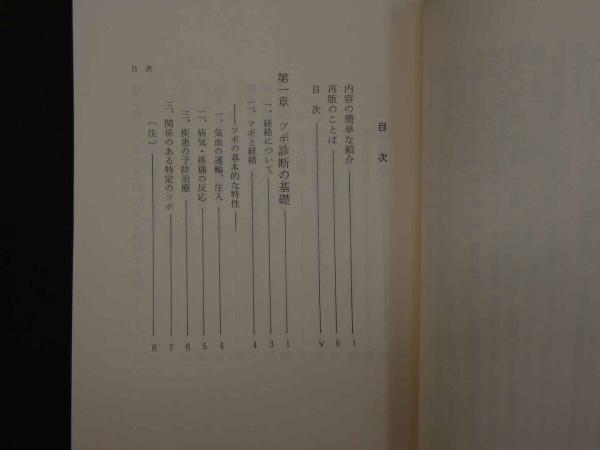 目次
内容の簡単な紹介 I
再版のことば II
目次 V
第一章 ツボ診断の基礎 1
一、経絡について 3
二、ツボと経絡 4
――ツボの基本的な特性――
一、気血の運輸、注入 4
二、病気・疼痛の反応 5
三、疾患の予防治療 6
三、関係のある特定のツボ 7
〔注〕 8
目次